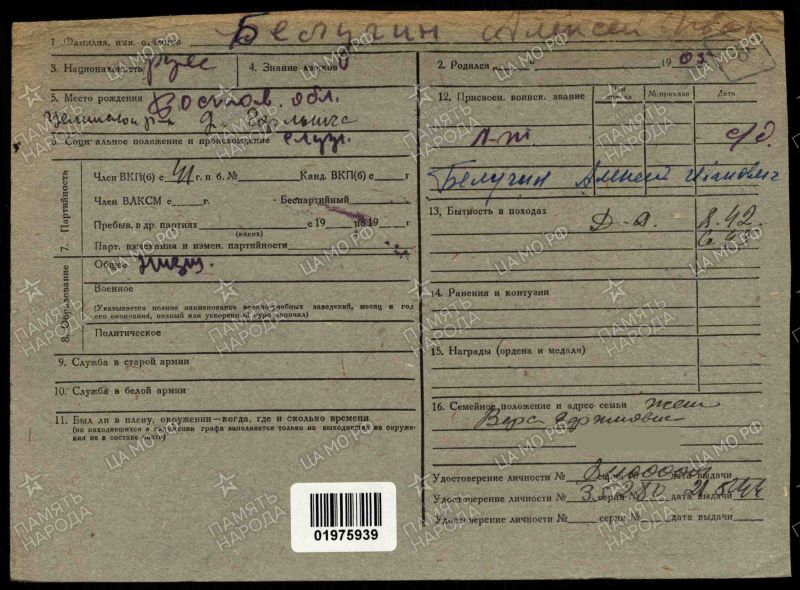 1 Фамилия, имя, отчество Белугин Алексей Иван
3. Национальность русс 4. Знание языков
2. Родился 1903
5. Место рождения обл.
6 Социальное положение и происхождение служ.
7. Партийность
Член ВКП(б) с 41 г. п. б. № Канд. ВКП(б) с г.
Член ВЛКСМ с г. Беспартийный
Пребыв. в др. партиях с 19 по 19 г.
(каких)
Парт. взыскания и измен. партийности
8. Образование
Общее низш.
Военное
(Указывается полное наименование военно-учебных заведений, месяц и год
его окончания, полный или ускоренный курс окончил)
Политическое
9. Служба в старой армии
10. Служба в белой армии
11. Был ли в плену, окружении—когда, где и сколько времени
(на находившихся в окружении графа заполняется только на вышедших из окруже-
ния не в составе части)
12. Присвоен. воинск. звание Чей приказ № приказа Дата
Л-т
Белугин Алексей Иванович
13. Бытность в походах Д-А. 8.42
14. Ранения и контузии
15. Награды (ордена и медали)
16. Семейное положение и адрес семьи жена
Вера
Удостоверение личности № серия № дата выдачи
Удостоверение личности № серия № дата выдачи
Удостоверение личности № серия № дата выдачи
01975939
ПАМЯТЬ НАРОДА
ЦА МО РФ